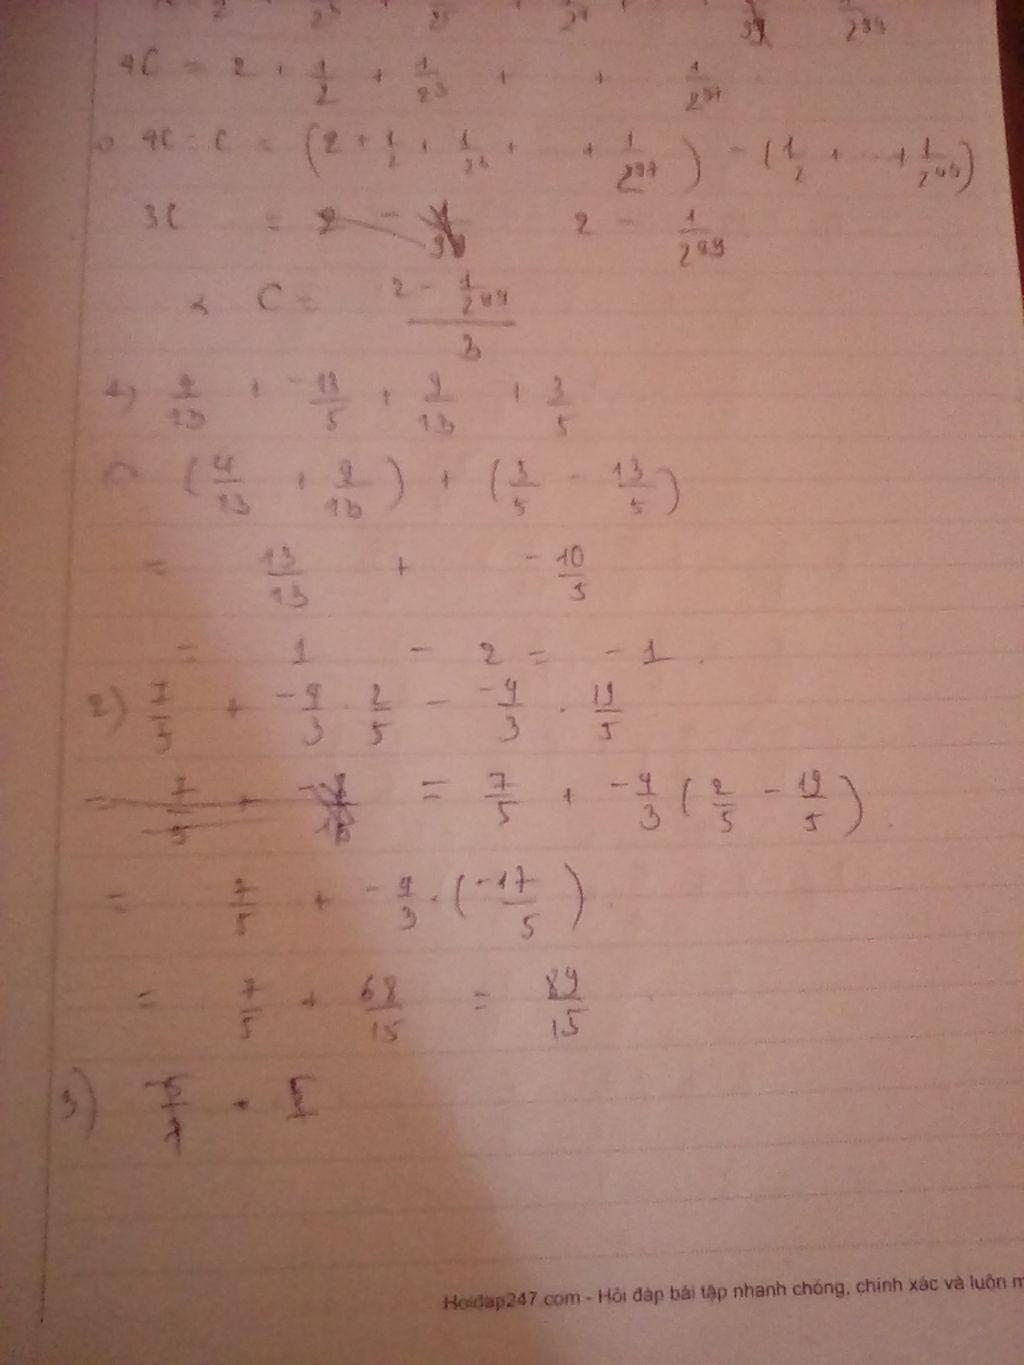 4C = 2 + 1/2 + 1/2^3 + + 1/2^97
4C - C = (2 + 1/2 + 1/2^3 + ... + 1/2^97) - (1/2 + ... + 1/2^99)
3C = 2 - 1/2^99
C = (2 - 1/2^99)/3
1) 4/13 + -13/5 + 9/13 + 3/5
(4/13 + 9/13) + (3/5 - 13/5)
= 13/13 + -10/5
= 1 - 2 = -1.
2) 7/5 + -4/3 . 2/5 - -4/3 . 19/5
= 7/5 + -4/3 (2/5 - 19/5).
= 7/5 + -4/3 . (-17/5)
= 7/5 + 68/15 = 89/15
3) -5/7 .
Hoidap247.com - Hỏi đáp bài tập nhanh chóng, chính xác và luôn m